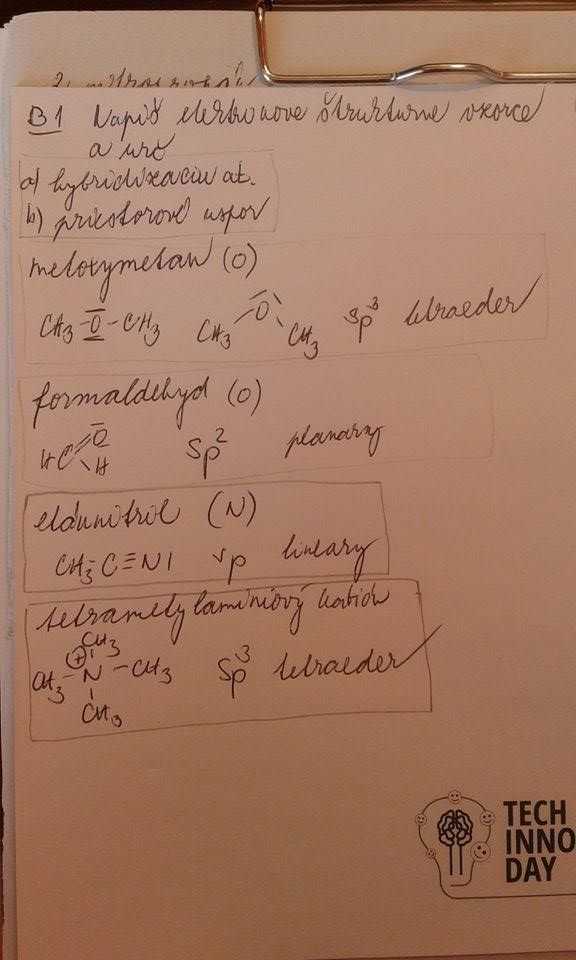 B1 Napíš elektrónové štruktúrne vzorce
a urč
a) hybridizáciu at.
b) priestorové uspor
metoxymetán (O)
CH3-O-CH3 CH3 O CH3 sp3 tetraeder
formaldehyd (O)
HC=O H sp2 planárny
etánnitril (N)
CH3-C≡N| sp lineárny
tetrametylamóniový katión
CH3
CH3-N-CH3 sp3 tetraeder
CH3
TECH
INNO
DAY